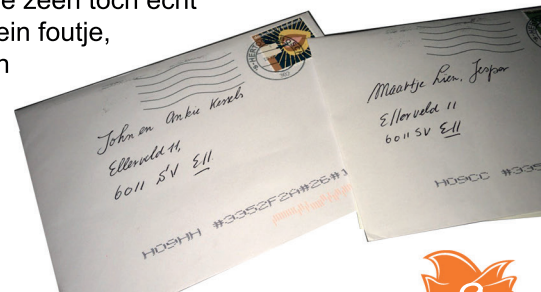 e zeen toch echt
ein foutje,
n
John en Ankie Kessels
Ellerveld 11,
6011 SV Ell
HOSHH #3352F2A#26#1
Maartje Lien, Jesper
Ellerveld 11
6011 SV Ell
HOSCC #335